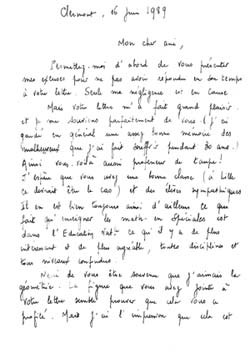 Clermont, 16 Juin 1989
Mon cher ami,
Permettez-moi d'abord de vous présenter
mes excuses pour ne pas avoir répondu en son temps
à votre lettre. Seule ma négligence est en cause.
Mais votre lettre m'a fait grand plaisir
et je me souviens parfaitement de vous (j'ai
gardé en général une assez bonne mémoire des
malheureux que j'ai fait souffrir pendant 30 ans!)
Ainsi vous voilà aussi professeur de taupe!
J'espère que vous avez une bonne classe (à
ce devrait être le cas) et des élèves sympathiques
Il en est bien toujours ainsi d'ailleurs ce qui
fait qu'enseigner les math. en spéciales est
dans l'Education Nat. ce qu'il y a de plus
intéressant et de plus agréable, toutes disciplines et
tous niveaux confondus.
Merci de vous être souvenu que j'aimais la
géométrie. La figure que vous avez jointe à
votre lettre semble prouver que cela vous a
profité. Mais j'ai l'impression que cela est